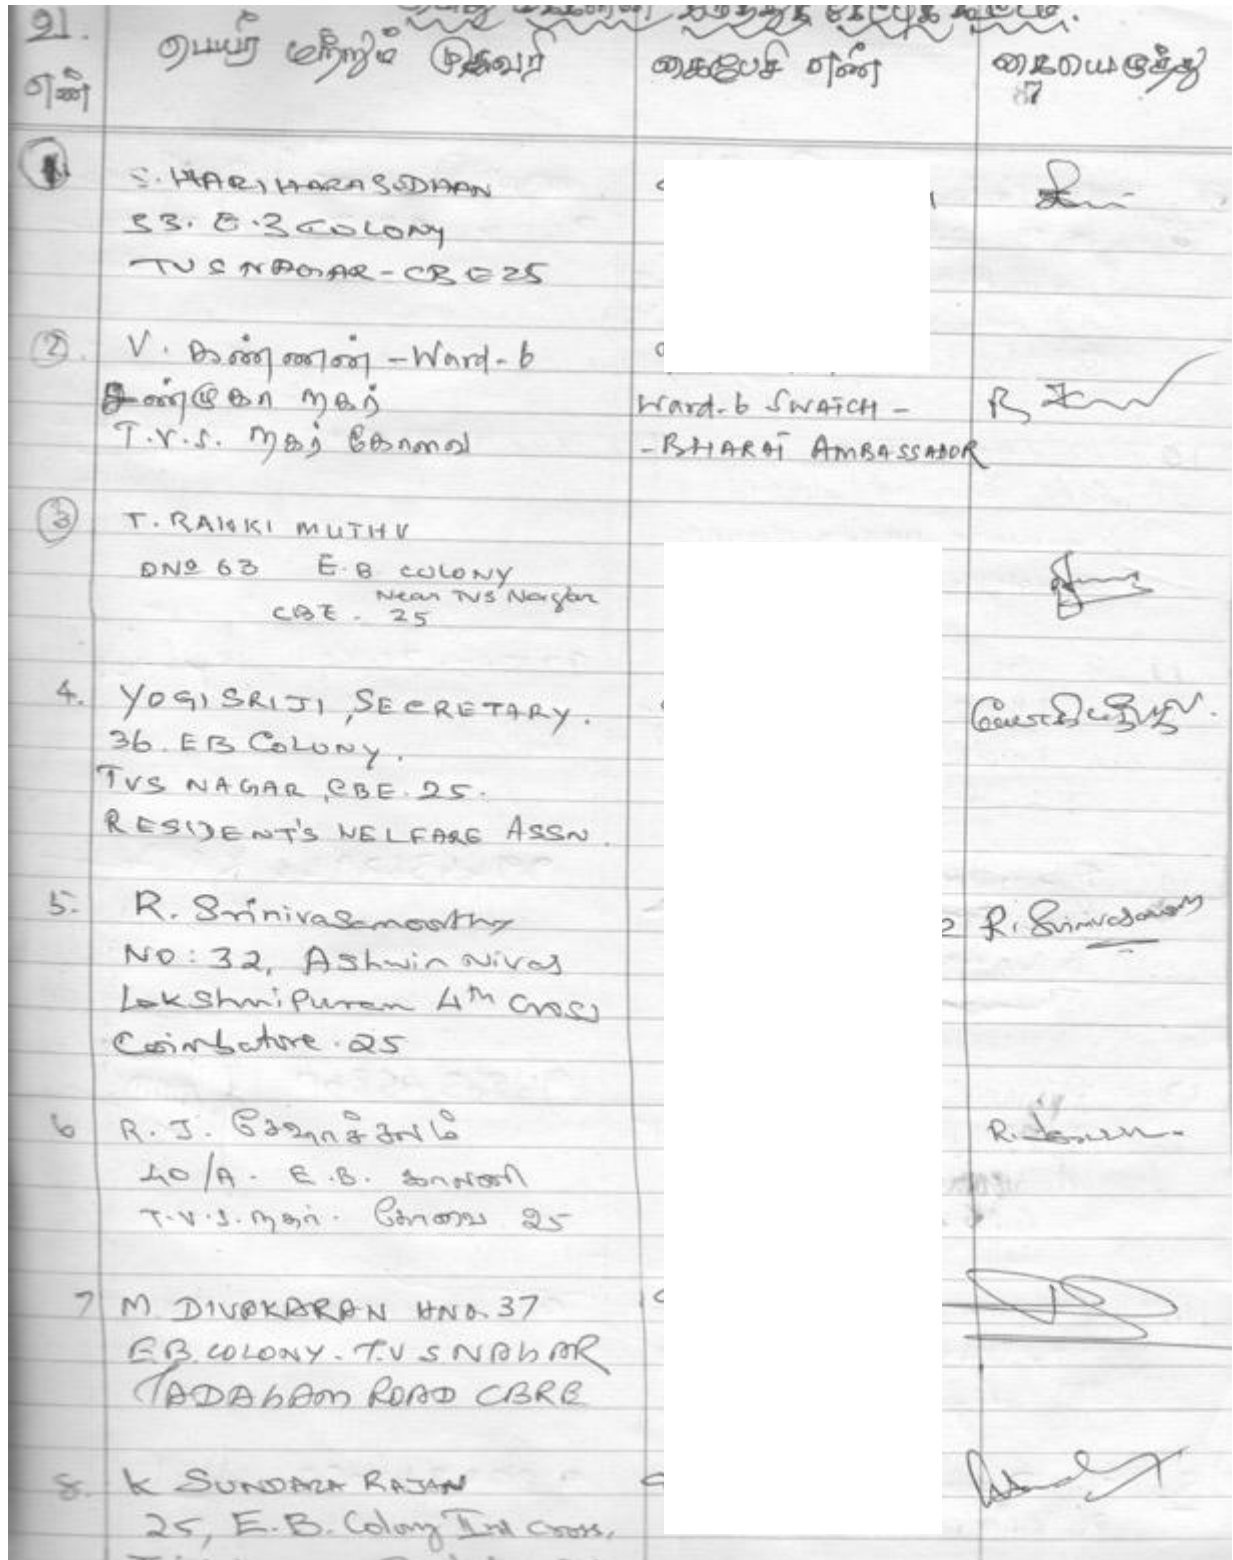 பொது மக்களின் கருத்துக் கேட்புக் கூட்டம்.
வ. எண் பெயர் மற்றும் முகவரி கைபேசி எண் கையெழுத்து
7
1 S. HARIHARASUDHAN
33. E.B COLONY
TVS NAGAR - CBE 25
2. V. கண்ணன் - Ward-6
சண்முகா நகர் Ward-6 SWATCH -
T.V.S. நகர் கோவை - BHARAT AMBASSADOR
3 T. RAKKI MUTHU
DNo 63 E.B. COLONY
Near TVS Nagar
CBE - 25
4. YOGI SRIJI, SECRETARY.
36. EB COLONY.
TVS NAGAR, CBE. 25.
RESIDENT'S WELFARE ASSN.
5. R. Srinivasamoorthy R. Srinivasamoorthy
NO: 32, Ashwin Nivas
Lakshmipuram 4th Cross
Coimbatore. 25
6 R. J. வேதாச்சலம்
40/A. E.B. காலனி
T.V.S. நகர். கோவை 25
7 M. DIVAKARAN HNO. 37
E.B. COLONY. T.V S NAGAR
TADAGAM ROAD CBRE
8. K SUNDARA RAJAN
25, E.B. Colony IInd cross,